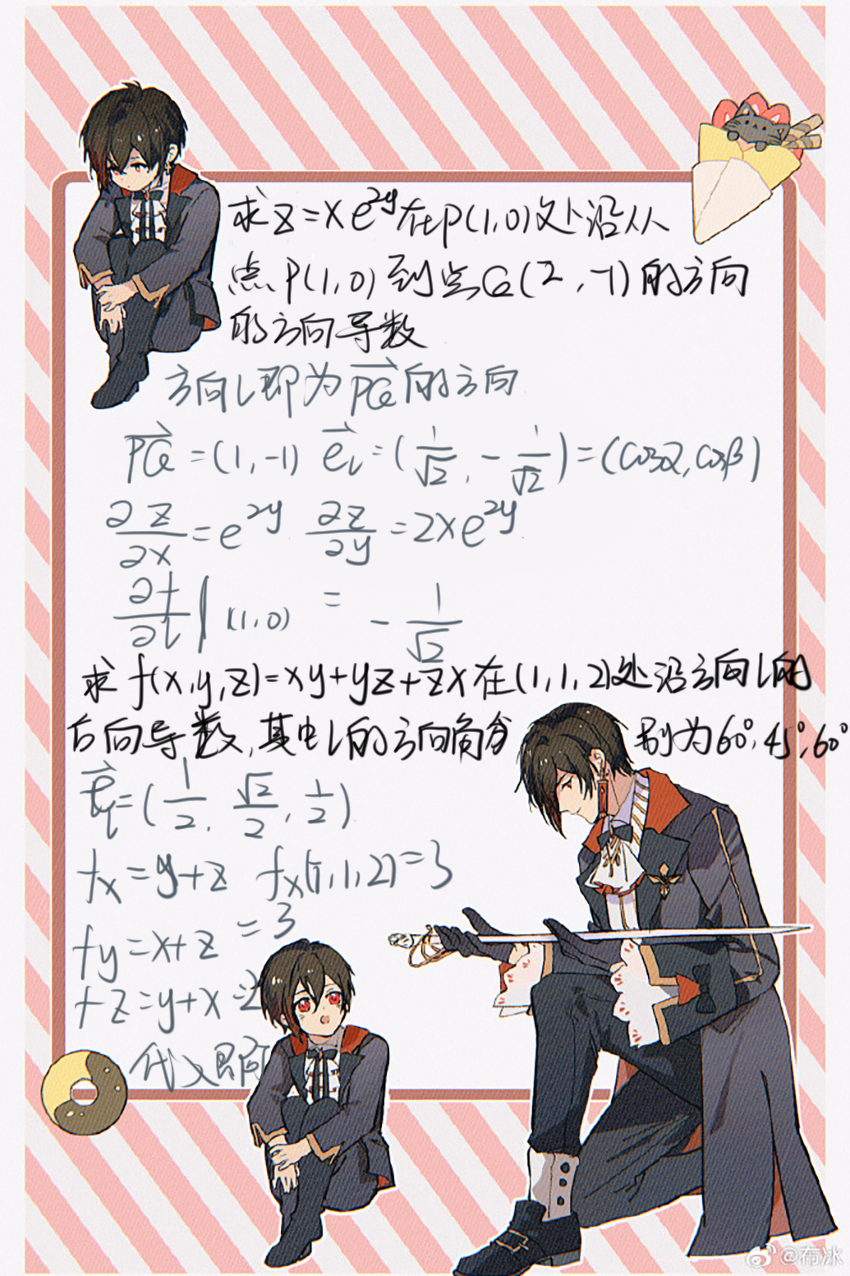 求z=xe^{2y}在P(1,0)处沿从
点P(1,0)到点Q(2,-1)的方向
的方向导数
方向l即为\vec{PQ}的方向
\vec{PQ}=(1,-1) \vec{e_l}=(\frac{1}{\sqrt{2}},-\frac{1}{\sqrt{2}})=(cosα,cosβ)
\frac{∂z}{∂x}=e^{2y} \frac{∂z}{∂y}=2xe^{2y}
\frac{∂f}{∂l}|(1,0) = -\frac{1}{\sqrt{2}}
求f(x,y,z)=xy+yz+zx在(1,1,2)处沿方向l的
方向导数,其中l的方向角分别为60°,45°,60°
\vec{e_l}=(\frac{1}{2},\frac{\sqrt{2}}{2},\frac{1}{2})
fx=y+z fx(1,1,2)=3
fy=x+z =3
fz=y+x=2
代入即可
@布冰